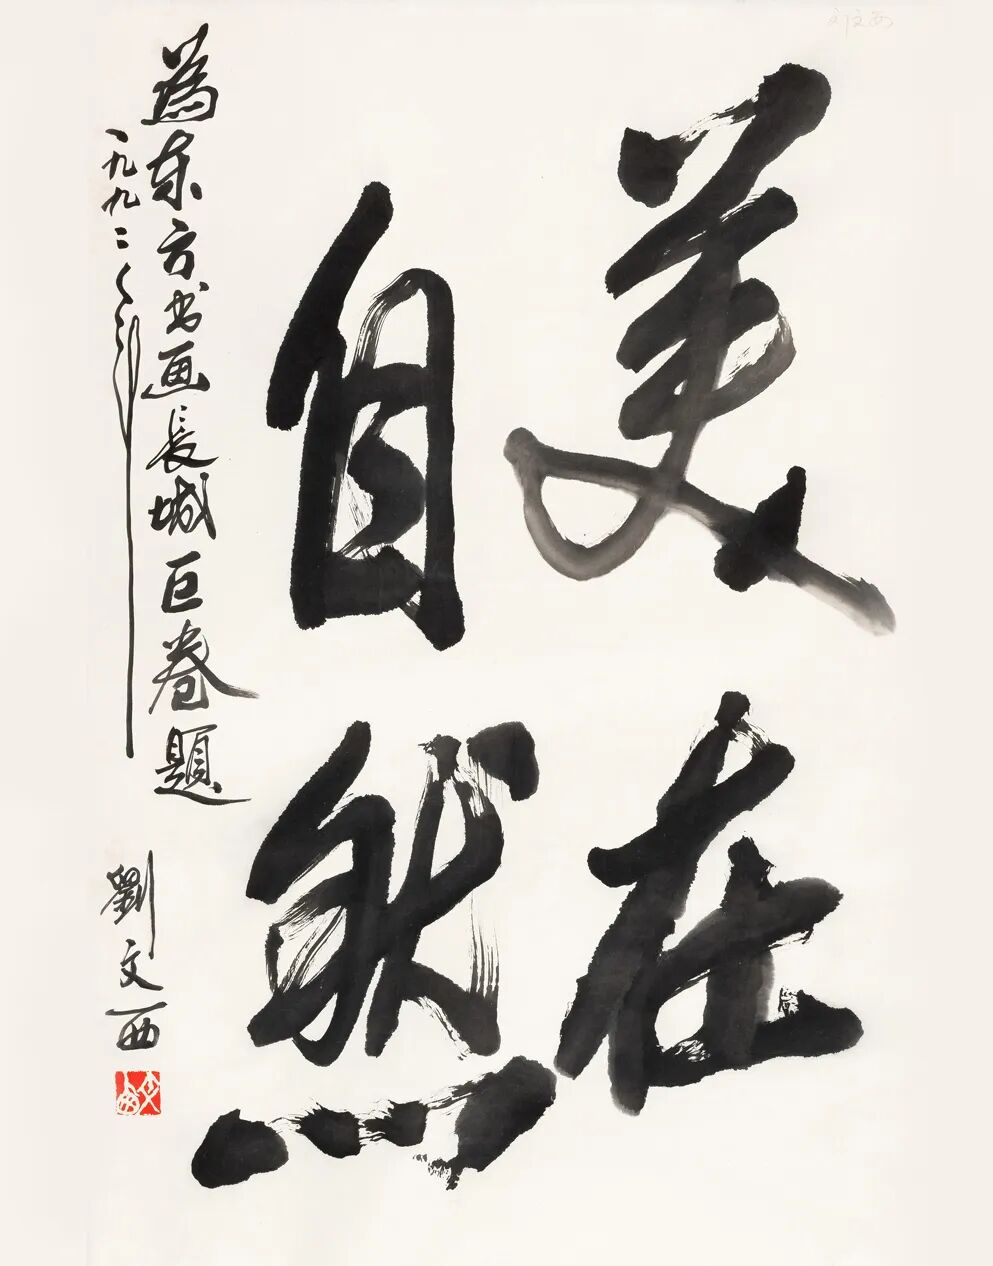 刘文西
美在
自然
為东方书画長城巨卷題
一九九二年 劉文西
文西